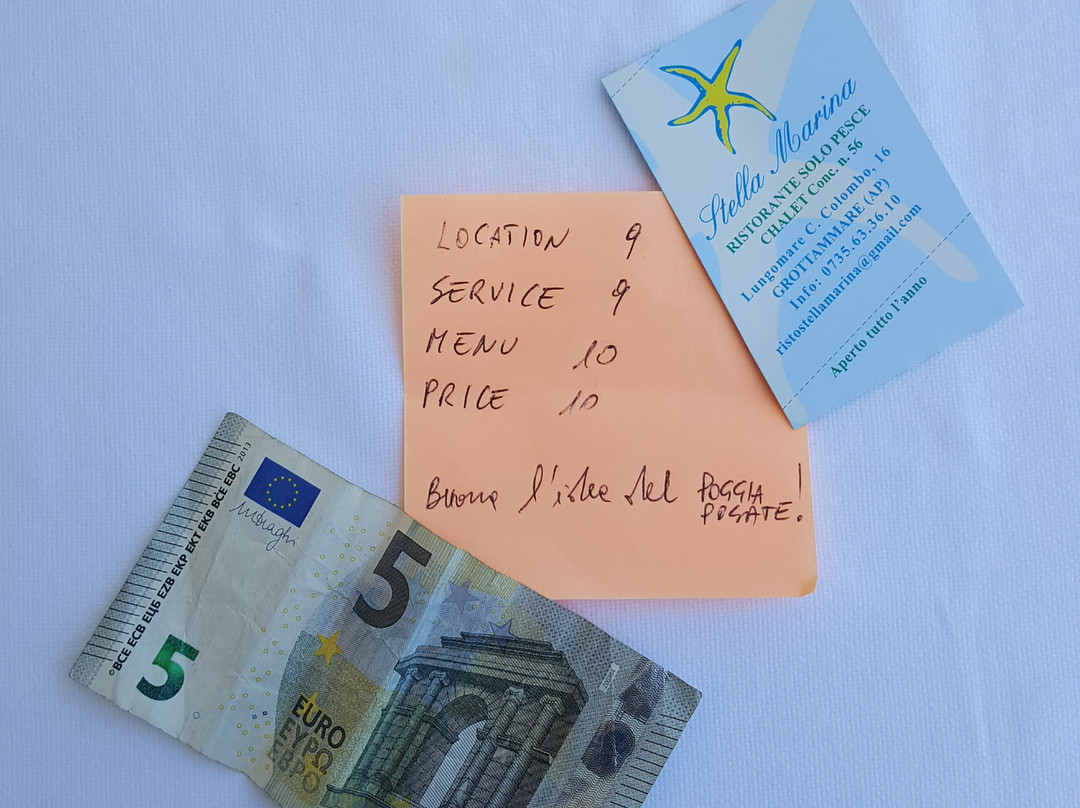 Stella Marina
RISTORANTE SOLO PESCE
CHALET Conc. n. 56
Lungomare C. Colombo, 16
GROTTAMMARE (AP)
Info: 0735.63.36.10
ristostellamarina@gmail.com
Aperto tutto l'anno
LOCATION 9
SERVICE 9
MENU 10
PRICE 10
Buona l'idea del POGGIA
POSATE!
©BCE ECB ЕЦБ EZB EKP EKT EKB BĊE EBC 2013
M Draghi
5
5
EURO
ΕΥΡΩ
ЕВРО